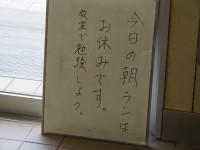 今日の朝ランは
お休みです。
教室で勉強しよう。